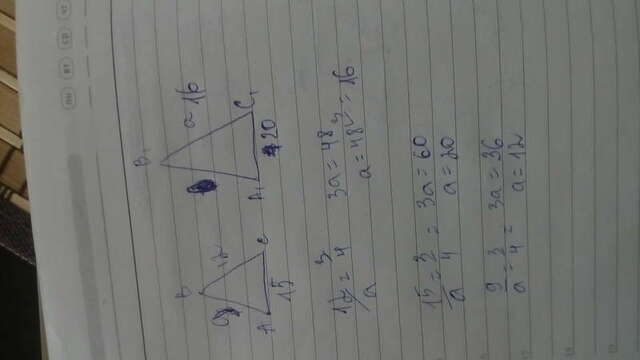 B
9 12
A C
15
B₁
a 16
A₁ C₁
20
12/a = 3/4 3a = 48
a = 48 : 3 = 16
15/a = 3/4 = 3a = 60
a = 20
9/a = 3/4 = 3a = 36
a = 12
пн вт ср чт